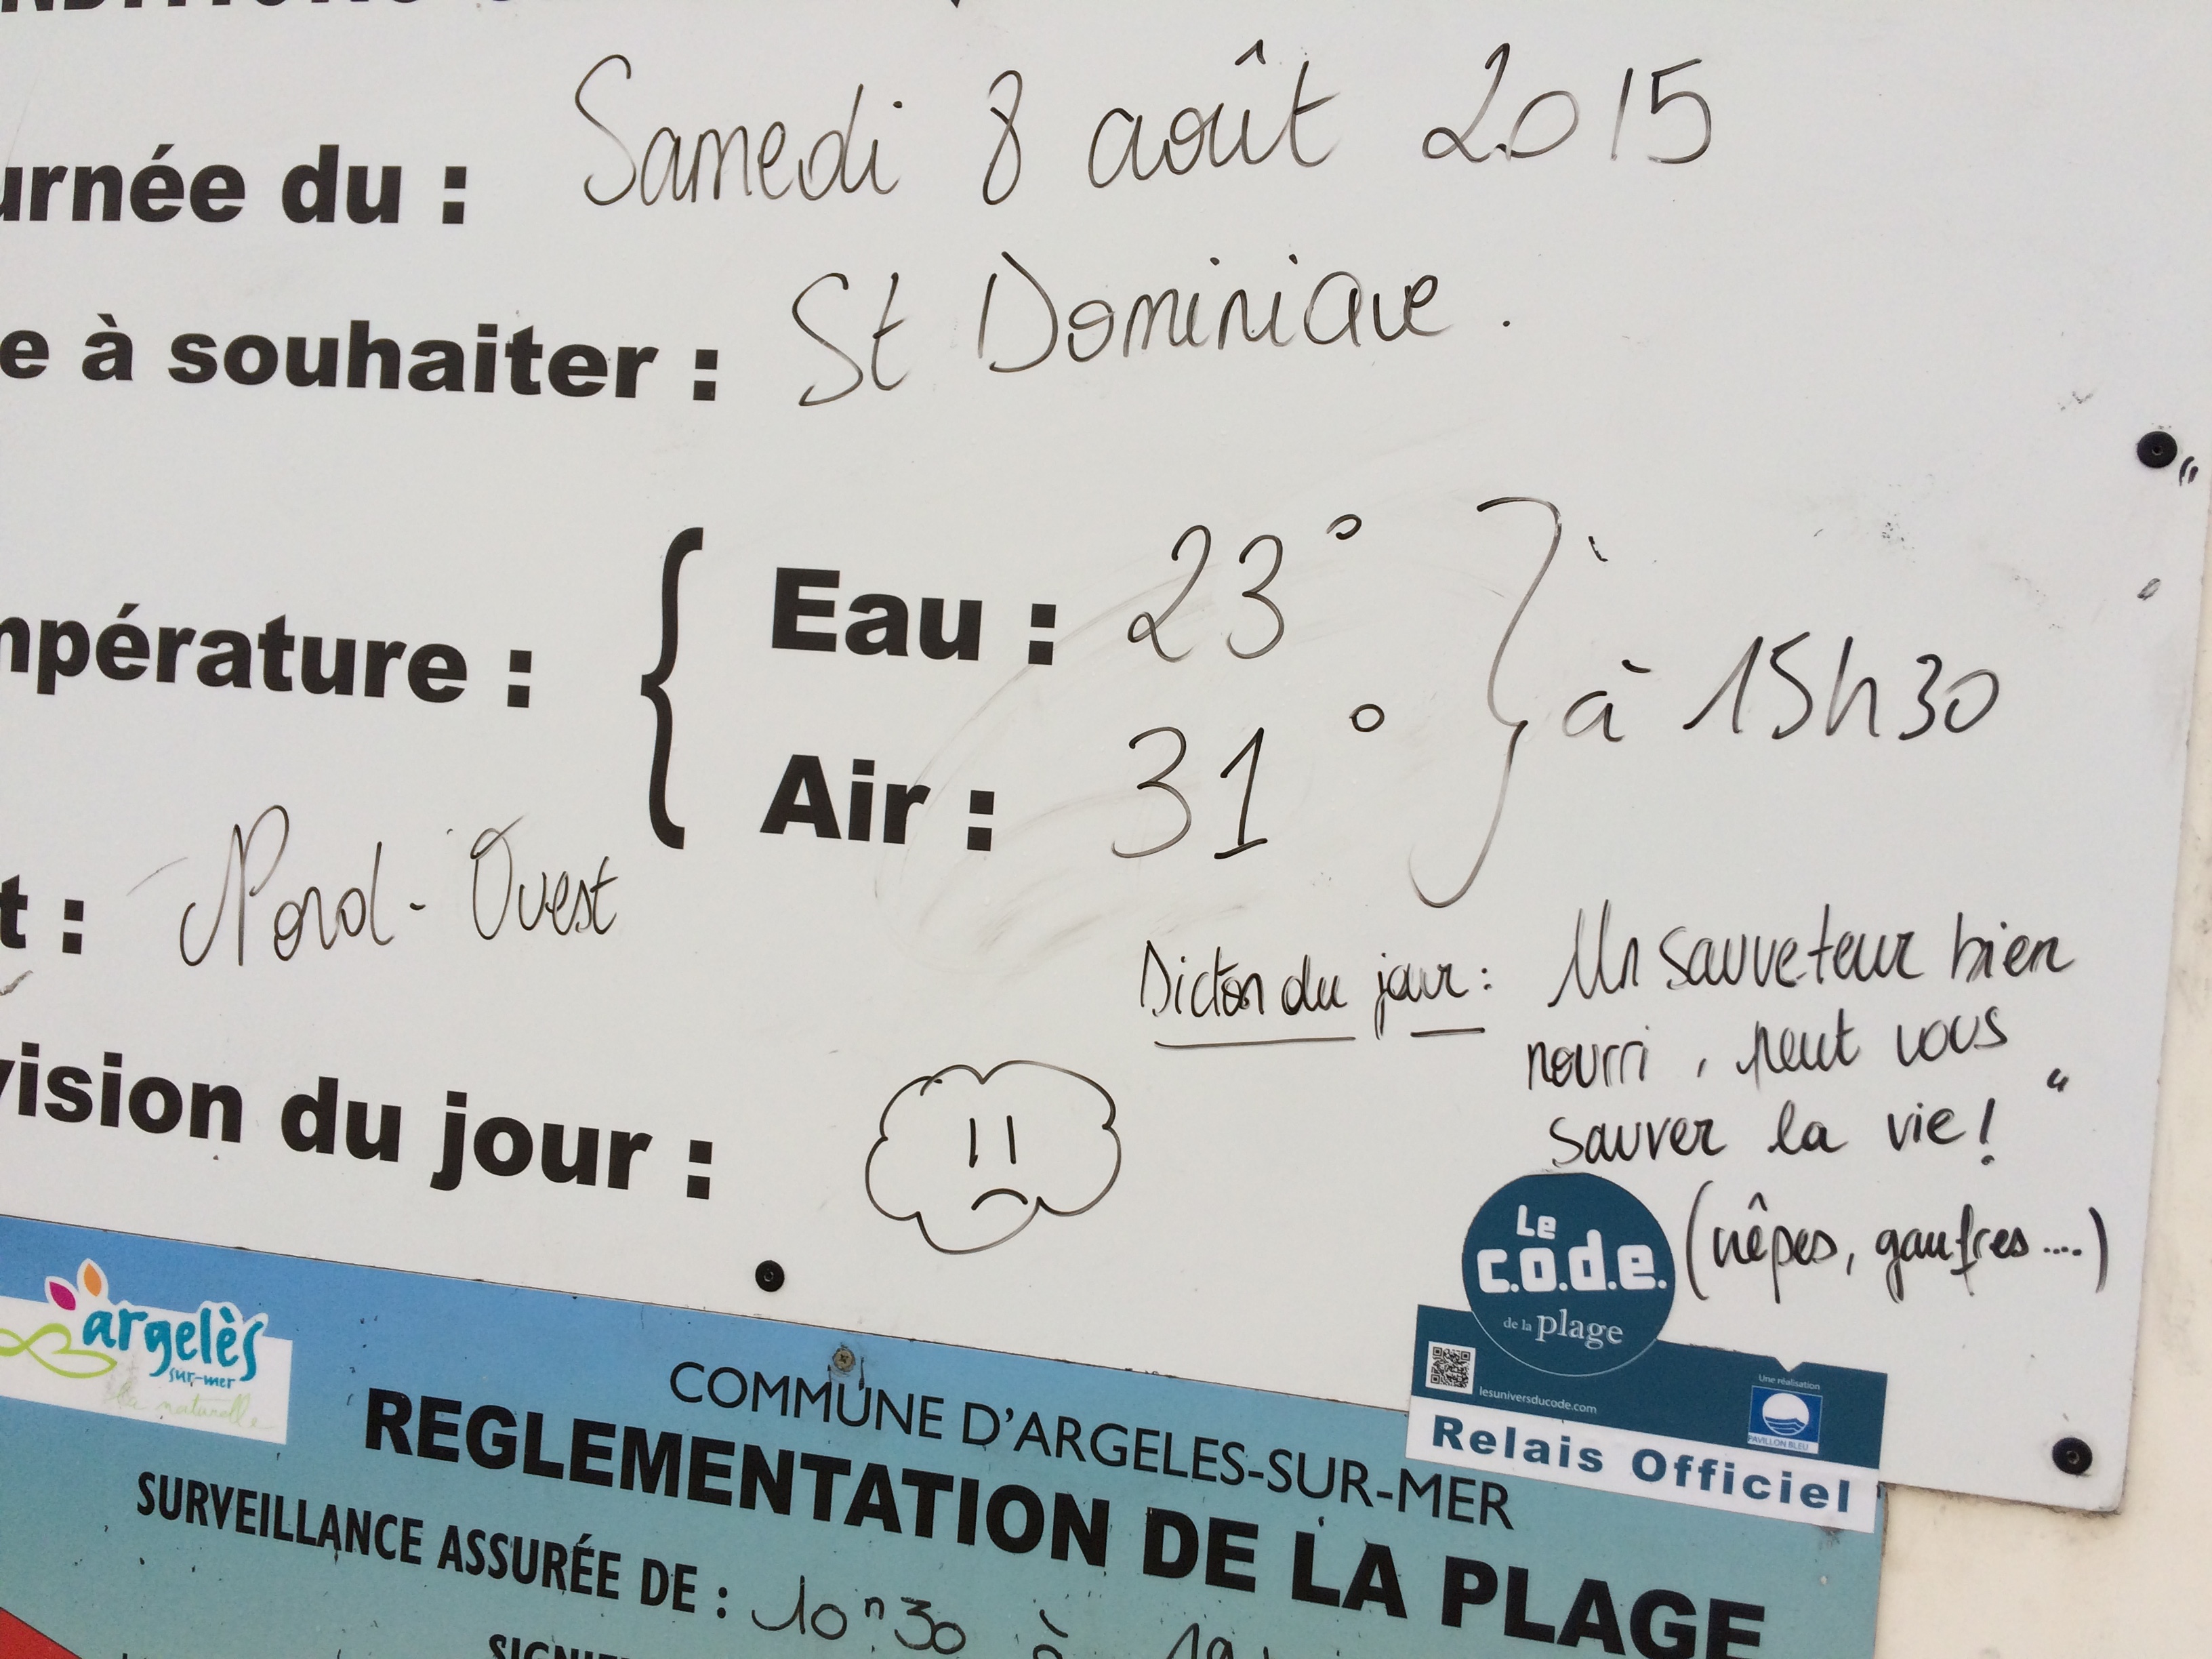 urnée du : Samedi 8 août 2015
e à souhaiter : St Dominique.
mpérature :
Eau : 23°
Air : 31°
à 15h30
t : Nord-Ouest
Dicton du jour : Un sauveteur bien
nourri, peut vous
sauver la vie ! "
(crêpes, gaufres....)
vision du jour :
Le
c.o.d.e.
de la plage
lesuniversducode.com
Une réalisation
PAVILLON BLEU
Relais Officiel
argelès
sur-mer
la naturelle
COMMUNE D'ARGELES-SUR-MER
REGLEMENTATION DE LA PLAGE
SURVEILLANCE ASSURÉE DE : 10h30 à